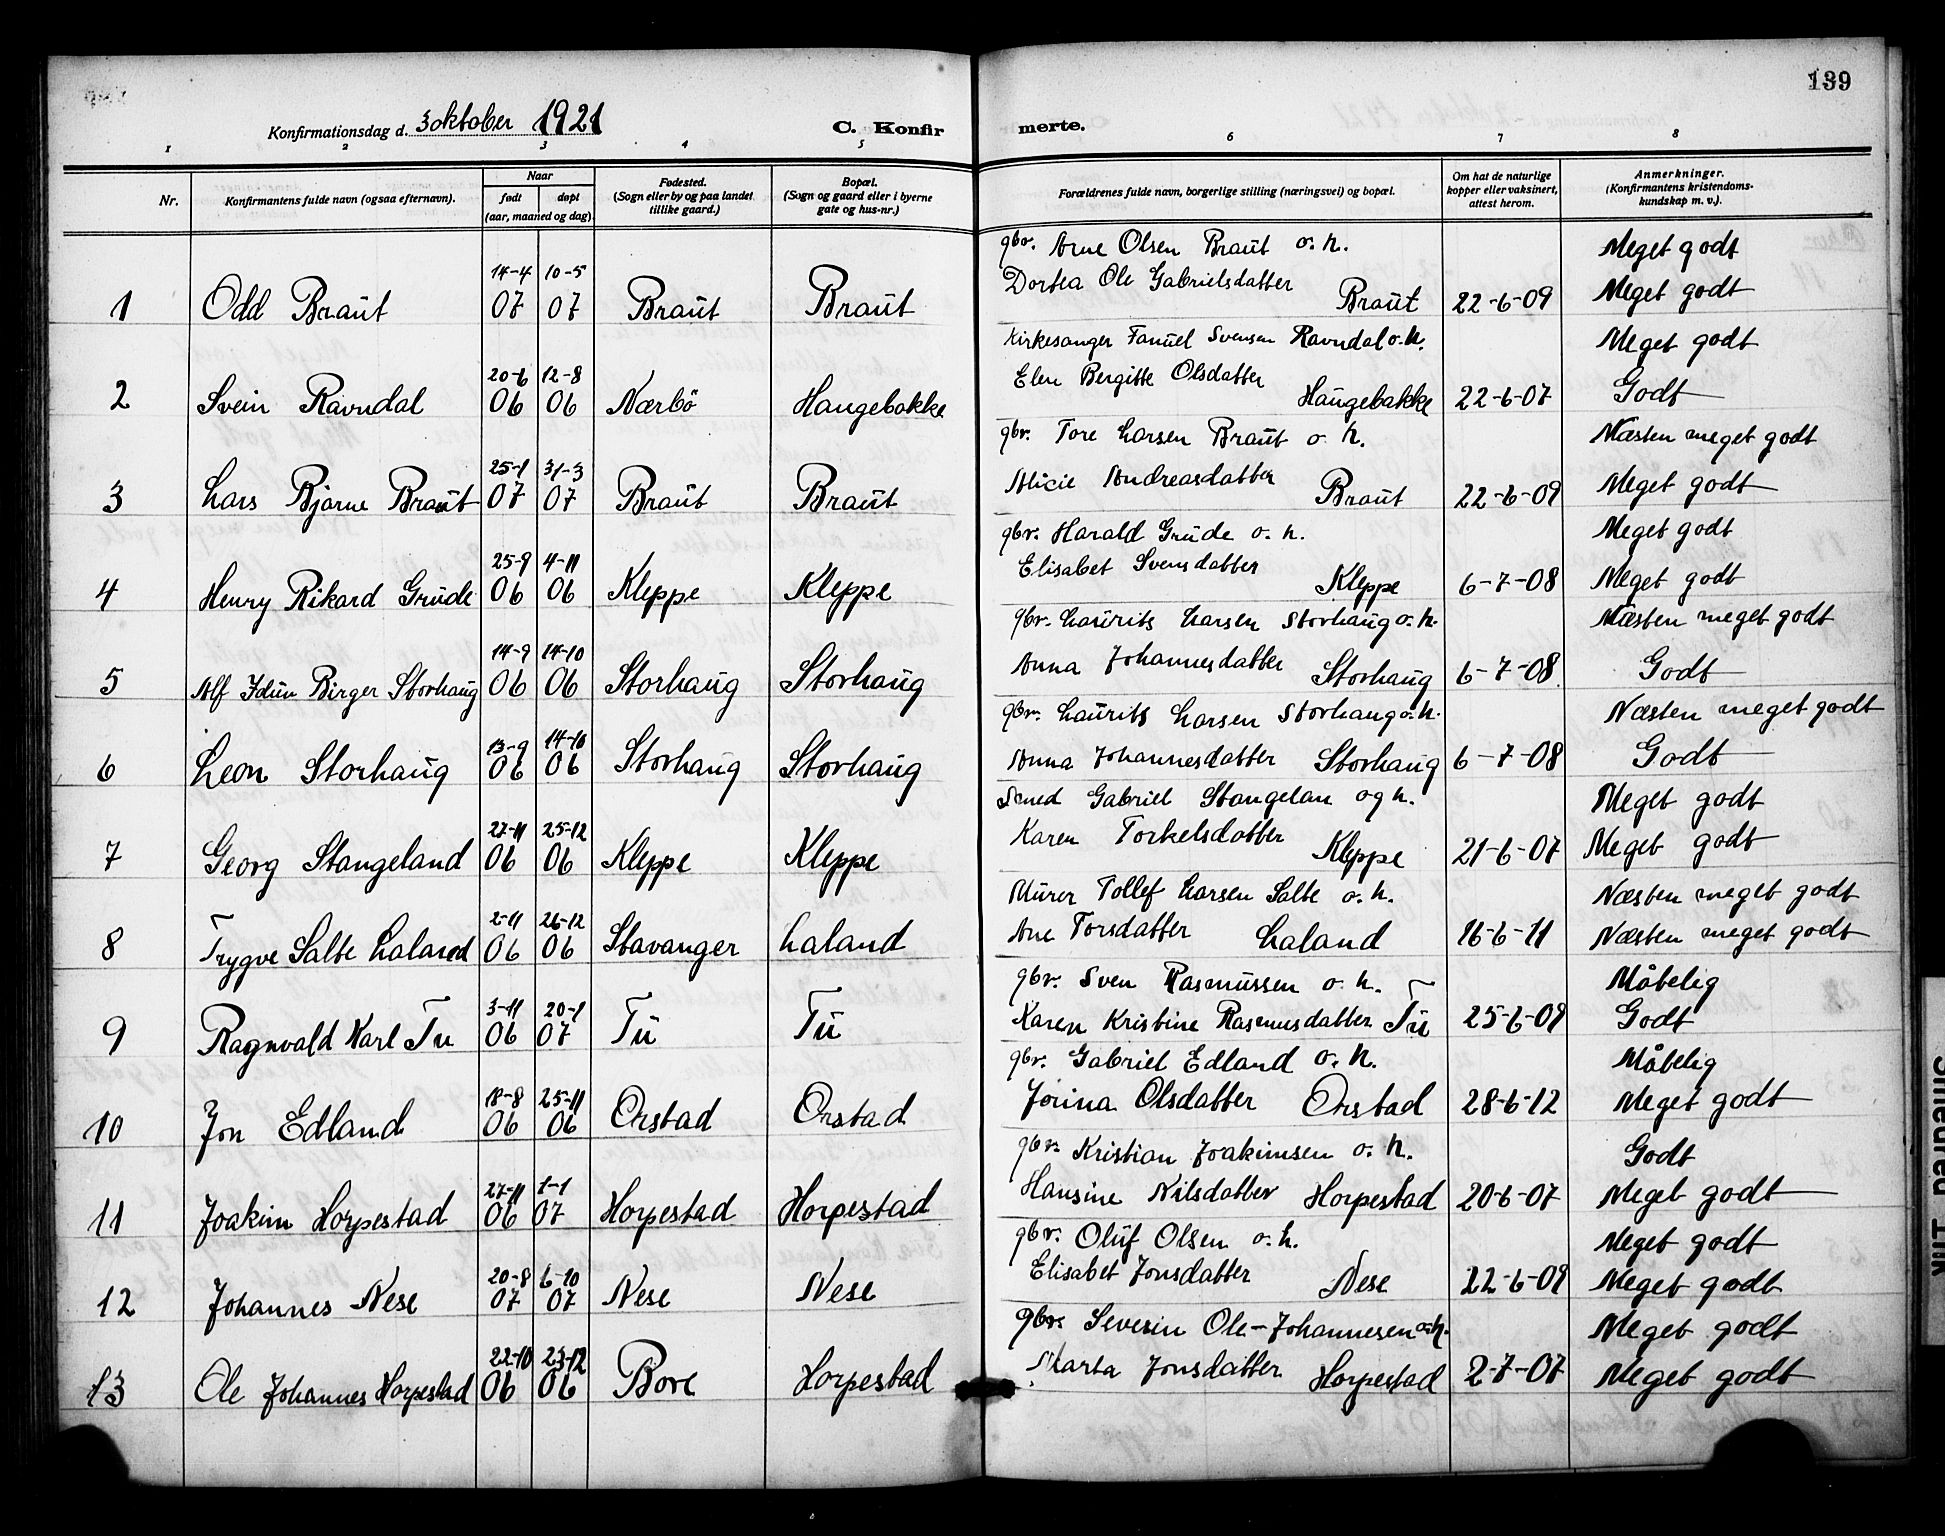 139
Konfirmationsdag d. 3 oktober 1921
C. Konfirmerte.
1 2 3 4 5 6 7 8
Nr.
Konfirmantens fulde navn (ogsaa efternavn).
Naar
født døpt
(aar, maaned og dag)
Fødested.
(Sogn eller by og paa landet
tillike gaard.)
Bopæl.
(Sogn og gaard eller i byerne
gate og hus-nr.)
Forældrenes fulde navn, borgerlige stilling (næringsvei) og bopæl.
Om hat de naturlige
kopper eller vaksinert,
attest herom.
Anmerkninger.
(Konfirmantens kristendoms-
kundskap m. v.).
gbr. Arne Olsen Braut o. h. Meget godt
14-4 10-5 Dortea Ole Gabrielsdatter
1 Odd Braut 07 07 Braut Braut Braut 22-6-09 Meget godt
Kirkesanger Fanuel Svensen Ravndal o. h. Meget godt
20-6 12-8 Elen Bergitte Olsdatter
2 Svein Ravndal 06 06 Nærbö Haugebakke Haugebakke 22-6-07 Godt
gbr. Tore Larsen Braut o. h. Næsten meget godt
25-1 31-3 Alicie Andreasdatter
3 Lars Bjarne Braut 07 07 Braut Braut Braut 22-6-09 Meget godt
gbr. Harald Grude o. h. Meget godt
25-9 4-11 Elisabet Svensdatter
4 Henry Rikard Grude 06 06 Kleppe Kleppe Kleppe 6-7-08 Meget godt
gbr. Laurits Larsen Storhaug o. h. Næsten meget godt
14-9 14-10 Anna Johannesdatter
5 Alf Idun Birger Storhaug 06 06 Storhaug Storhaug Storhaug 6-7-08 Godt
gbr. Laurits Larsen Storhaug o. h. Næsten meget godt
13-9 14-10
6 Leon Storhaug 06 06 Storhaug Storhaug Anna Johannesdatter Storhaug 6-7-08 Godt
Smed Gabriel Stangelan og h. Meget godt
27-11 25-12 Karen Torkelsdatter
7 Georg Stangeland 06 06 Kleppe Kleppe Kleppe 21-6-07 Meget godt
Murer Tollef Larsen Salte o. h. Næsten meget godt
2-11 26-12
8 Trygve Salte Laland 06 06 Stavanger Laland Ane Torsdatter Laland 16-6-11 Næsten meget godt
gbr. Sven Rasmussen o. h. Måtelig
3-11 20-1
9 Ragnvald Karl Tu 06 07 Tu Tu Karen Kristine Rasmusdatter Tu 25-6-09 Godt
gbr. Gabriel Edland o. h. Måtelig
18-8 25-11
10 Jon Edland 06 06 Orstad Orstad Jorina Olsdatter Orstad 28-6-12 Meget godt
gbr. Kristian Joakimsen o. h. Godt
27-11 1-1
11 Joakim Horpestad 06 07 Horpestad Horpestad Hansine Nilsdatter Horpestad 20-6-07 Meget godt
gbr. Oluf Olsen o. h. Meget godt
20-8 6-10
12 Johannes Nese 07 07 Nese Nese Elisabet Jonsdatter Nese 22-6-09 Meget godt
gbr. Severin Ole-Johannesen o. h. Meget godt
22-10 23-12
13 Ole Johannes Horpestad 06 06 Bore Horpestad Marta Jonsdatter Horpestad 2-7-07 Meget godt